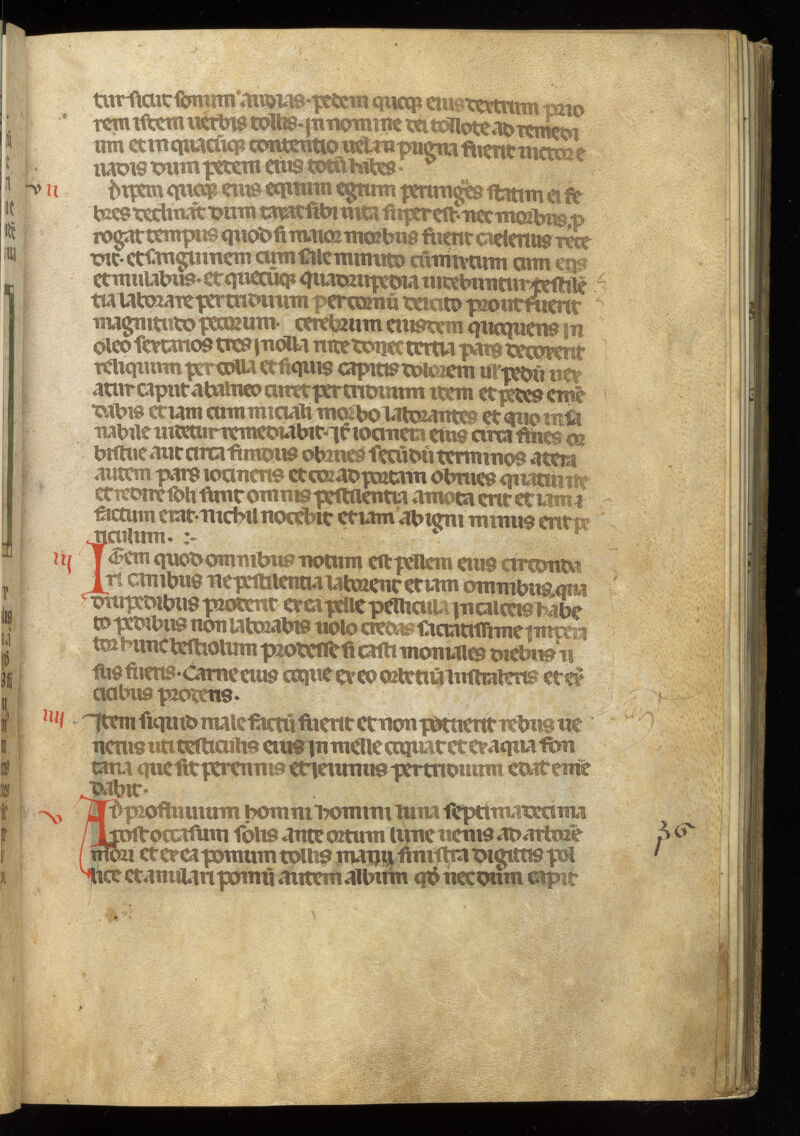 tur sicut somnum audias · pedem quoq; eius dextrum prio
rem istem uerbis tollis · In nomine dei tollo te ad remedi
um et in quacūq; contentio uel in pugna fuerit uictor e
uadis dum pedem eius totū habes ·
vii Dipem quoq; eius equum egrum perunges statim ei fe
bres declinat dum tapat sibi uita superest · nec morbus, p
rogat tempus quod si maior morbus fuerit caelerius rece
dit · et sanguinem cum sale minuto cū mixtum cum eqs
et mulabus · et quecūq; quadrupedia iudebuntur pestilē
tia laborare per triduum per cornū deicito prout fuerit
magnitudo pecorum · cerebrum eiusdem quoquens in
oleo sextarios tres in olla rude donec tertia pars decoxerit
reliquum per colla et siquis capitis dolorem ul pedū uex
atur caput abalneo curet per triduum item et pedes emē
dabis et iam cum miciali morbo laborantes et quo insa
nabile uidetur remediabit · It iocineta eius circa fines or
bistue aut circa fundus obrues secūdū terminos atera
autem pars iocineris et cor ad portam obrues quatiu ire
et redire soli sunt omnis pestilentia amota erit et iam i
factum erat · nichil nocebit et iam ab igni minus erit pe
riculum · :-
iij Idem quod omnibus notum est pellem eius circonda
ri canibus ne pestilentia laborent et iam omnibus, qua
drupedibus proderit ex ea pelle pellicula in calceis habe
to pedibus non laborabis uolo credas sacratissime impera
tor hunc bestiolum prodesse si casti moniales diebus ii
sus fueris · Carne eius coque ex eo ortetiū lustraberis et ei
cicibus prodens ·
iiij Item siquid male factū fuerit et non potuerit rebus ue
neriis uti testiculis eius in melle coquat et ex aqua fon
tana que sit perennis et ieiunus per triduum edat emē
dabit ·
v Ad profluuium homini homini luna septima decima
post occasum solis ante ortum lune uenis ad arborē
mori et ex ea pomum tollis manu sinistra digitis pol
lice et anulari pomū autem album qd nec dum capit
36